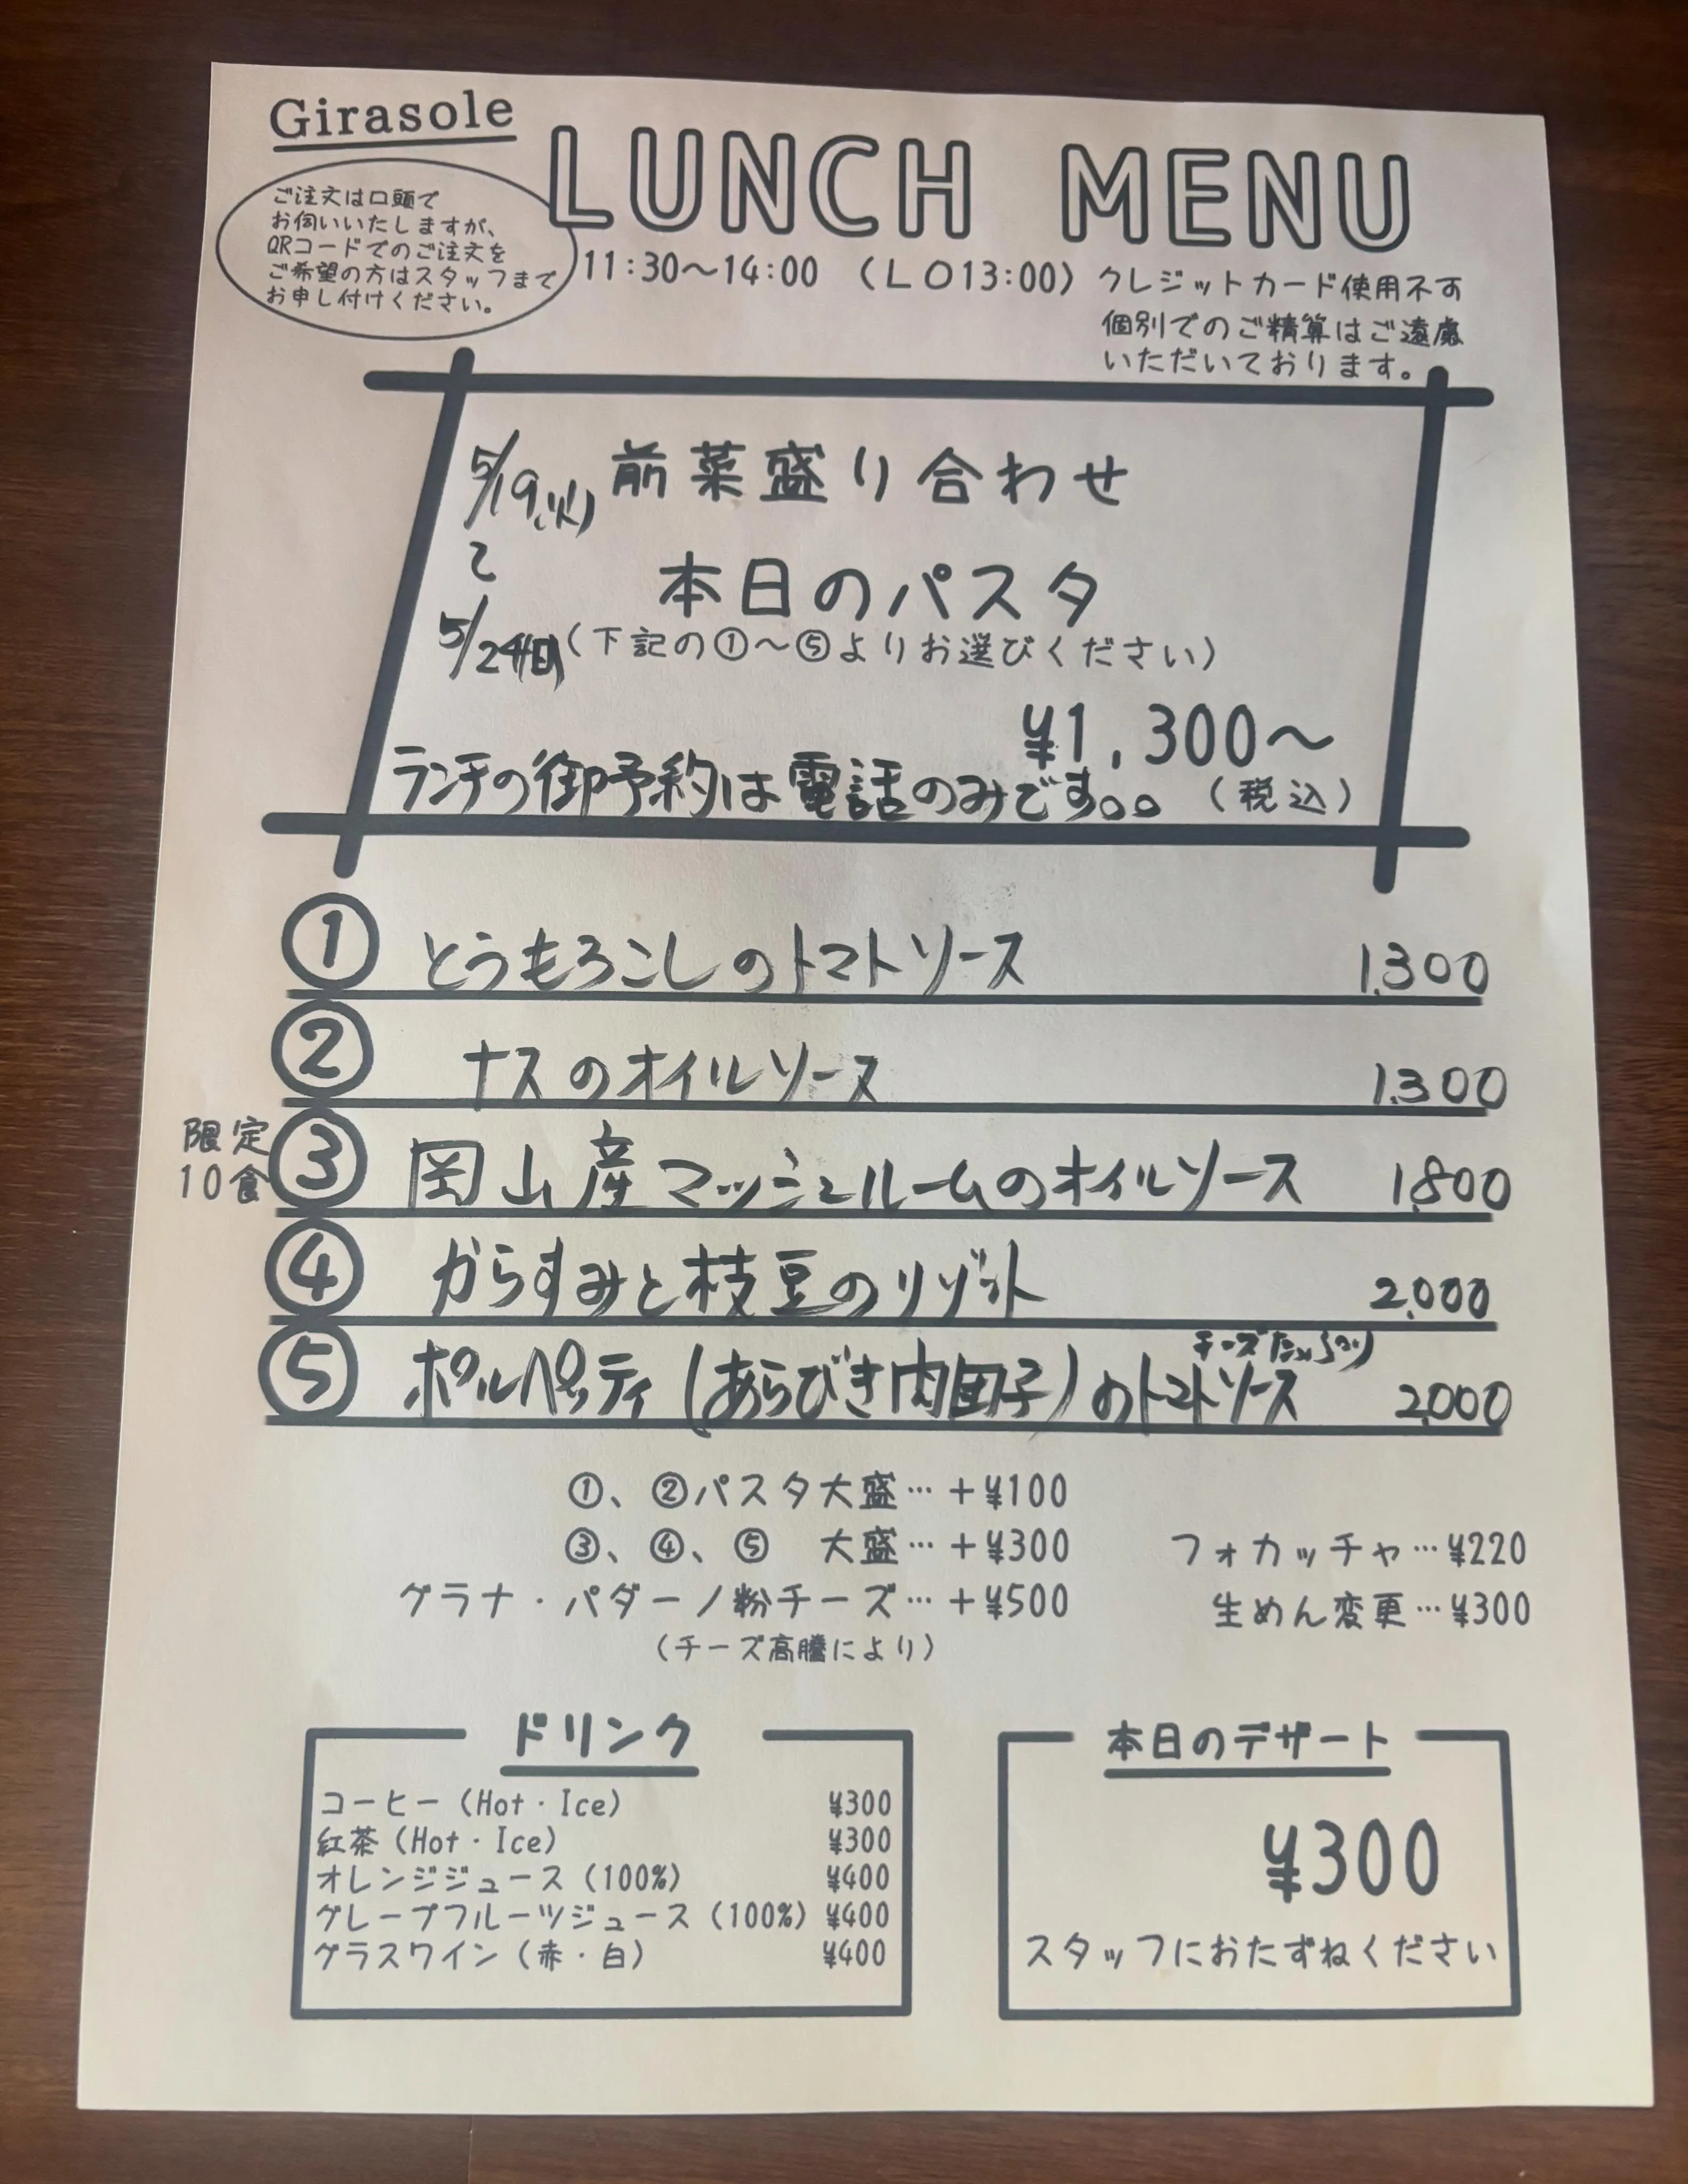 Girasole
LUNCH MENU
ご注文は口頭で
お伺いいたしますが、
QRコードでのご注文を
ご希望の方はスタッフまで
お申し付けください。
11:30～14:00 (LO13:00)
クレジットカード使用不可
個別でのご精算はご遠慮
いただいております。
5/19(火)
～
5/24(日)
前菜盛り合わせ
本日のパスタ
(下記の①～⑤よりお選びください)
¥1,300～
(税込)
ランチの御予約は電話のみです。。
① とうもろこしのトマトソース 1,300
② ナスのオイルソース 1,300
限定
10食
③ 岡山産マッシュルームのオイルソース 1,800
④ からすみと枝豆のリゾット 2,000
チーズたっぷり
⑤ ポルペッティ(あらびき肉団子)のトマトソース 2,000
①、②パスタ大盛…+¥100
③、④、⑤ 大盛…+¥300
グラナ・パダーノ粉チーズ…+¥500
(チーズ高騰により)
フォカッチャ…¥220
生めん変更…¥300
ドリンク
コーヒー(Hot・Ice) ¥300
紅茶(Hot・Ice) ¥300
オレンジジュース(100%) ¥400
グレープフルーツジュース(100%) ¥400
グラスワイン(赤・白) ¥400
本日のデザート
¥300
スタッフにおたずねください